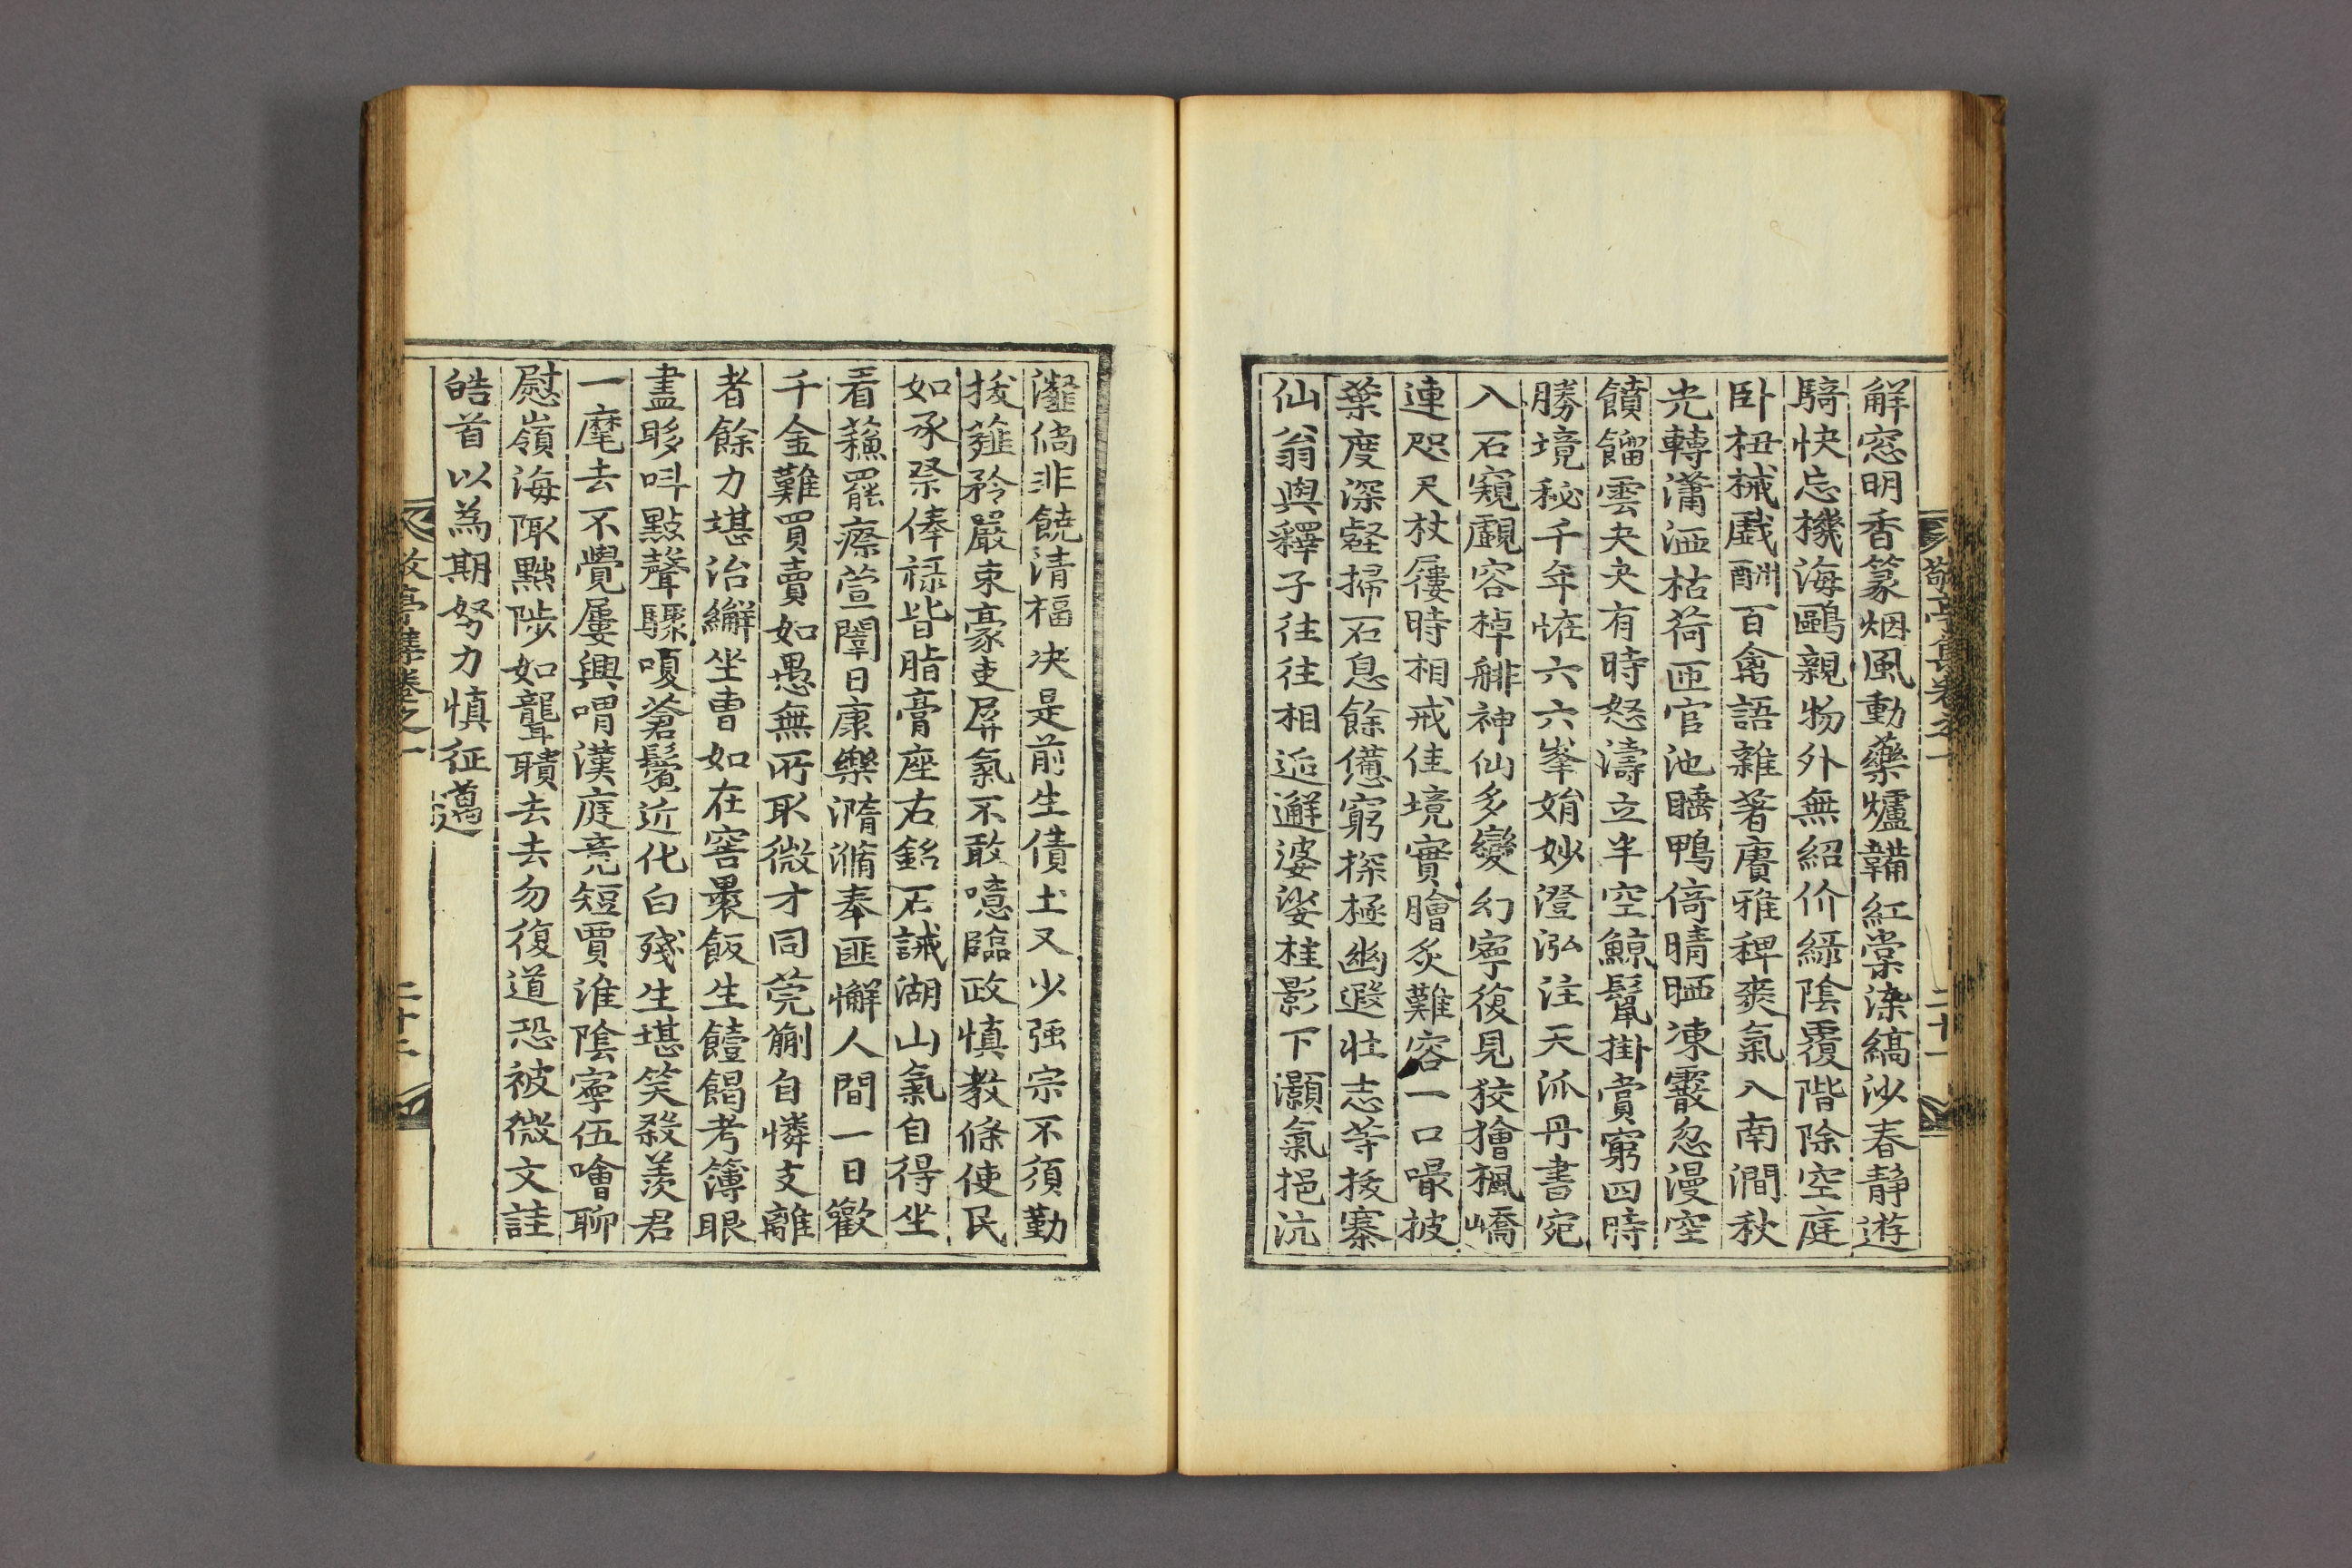 敬亭集卷之一
二十一
解窓明香篆烟風動藥爐韛紅棠染縞沙春靜遊
騎快忘機海鷗親物外無紹价緑陰覆階除空庭
卧杻械戱酬百禽語雜著賡雅稗爽氣入南澗秋
光轉瀟洒枯荷匝官池睡鴨倚晴晒凍霰忽漫空
饙餾雲夬夬有時怒濤立半空鯨鬣掛賞窮四時
勝境秘千年恠六六峯娟妙澄泓注天派丹書宛
入石窺覰容棹艑神仙多變幻寧復見狡獪楓嶠
連咫尺杖屨時相戒佳境實膾炙難容一口嘬披
葉度深壑掃石息餘憊窮探極幽遐壯志等拔寨
仙翁與釋子往往相逅邂婆娑桂影下灝氣挹沆
瀣倘非饒清福决是前生債土又少强宗不須勤
拔薤矜嚴束豪吏屛氣不敢噫臨政愼教條使民
如承祭俸祿皆脂膏座右銘石誡湖山氣自得坐
看蘓罷瘵萱闈日康樂瀡滫奉匪懈人間一日歡
千金難買賣如愚無所取微才同莞蒯自憐支離
者餘力堪治繲坐曹如在窖裹飯生饐餲考簿眼
盡眵呌點聲驟嗄蒼鬢近化白殘生堪笑殺羨君
一麾去不覺屢興喟漢庭竟短賈淮陰寧伍噲聊
慰嶺海陬黜陟如聾聵去去勿復道恐被微文詿
皓首以爲期努力愼征邁
敬亭集卷之一
二十二